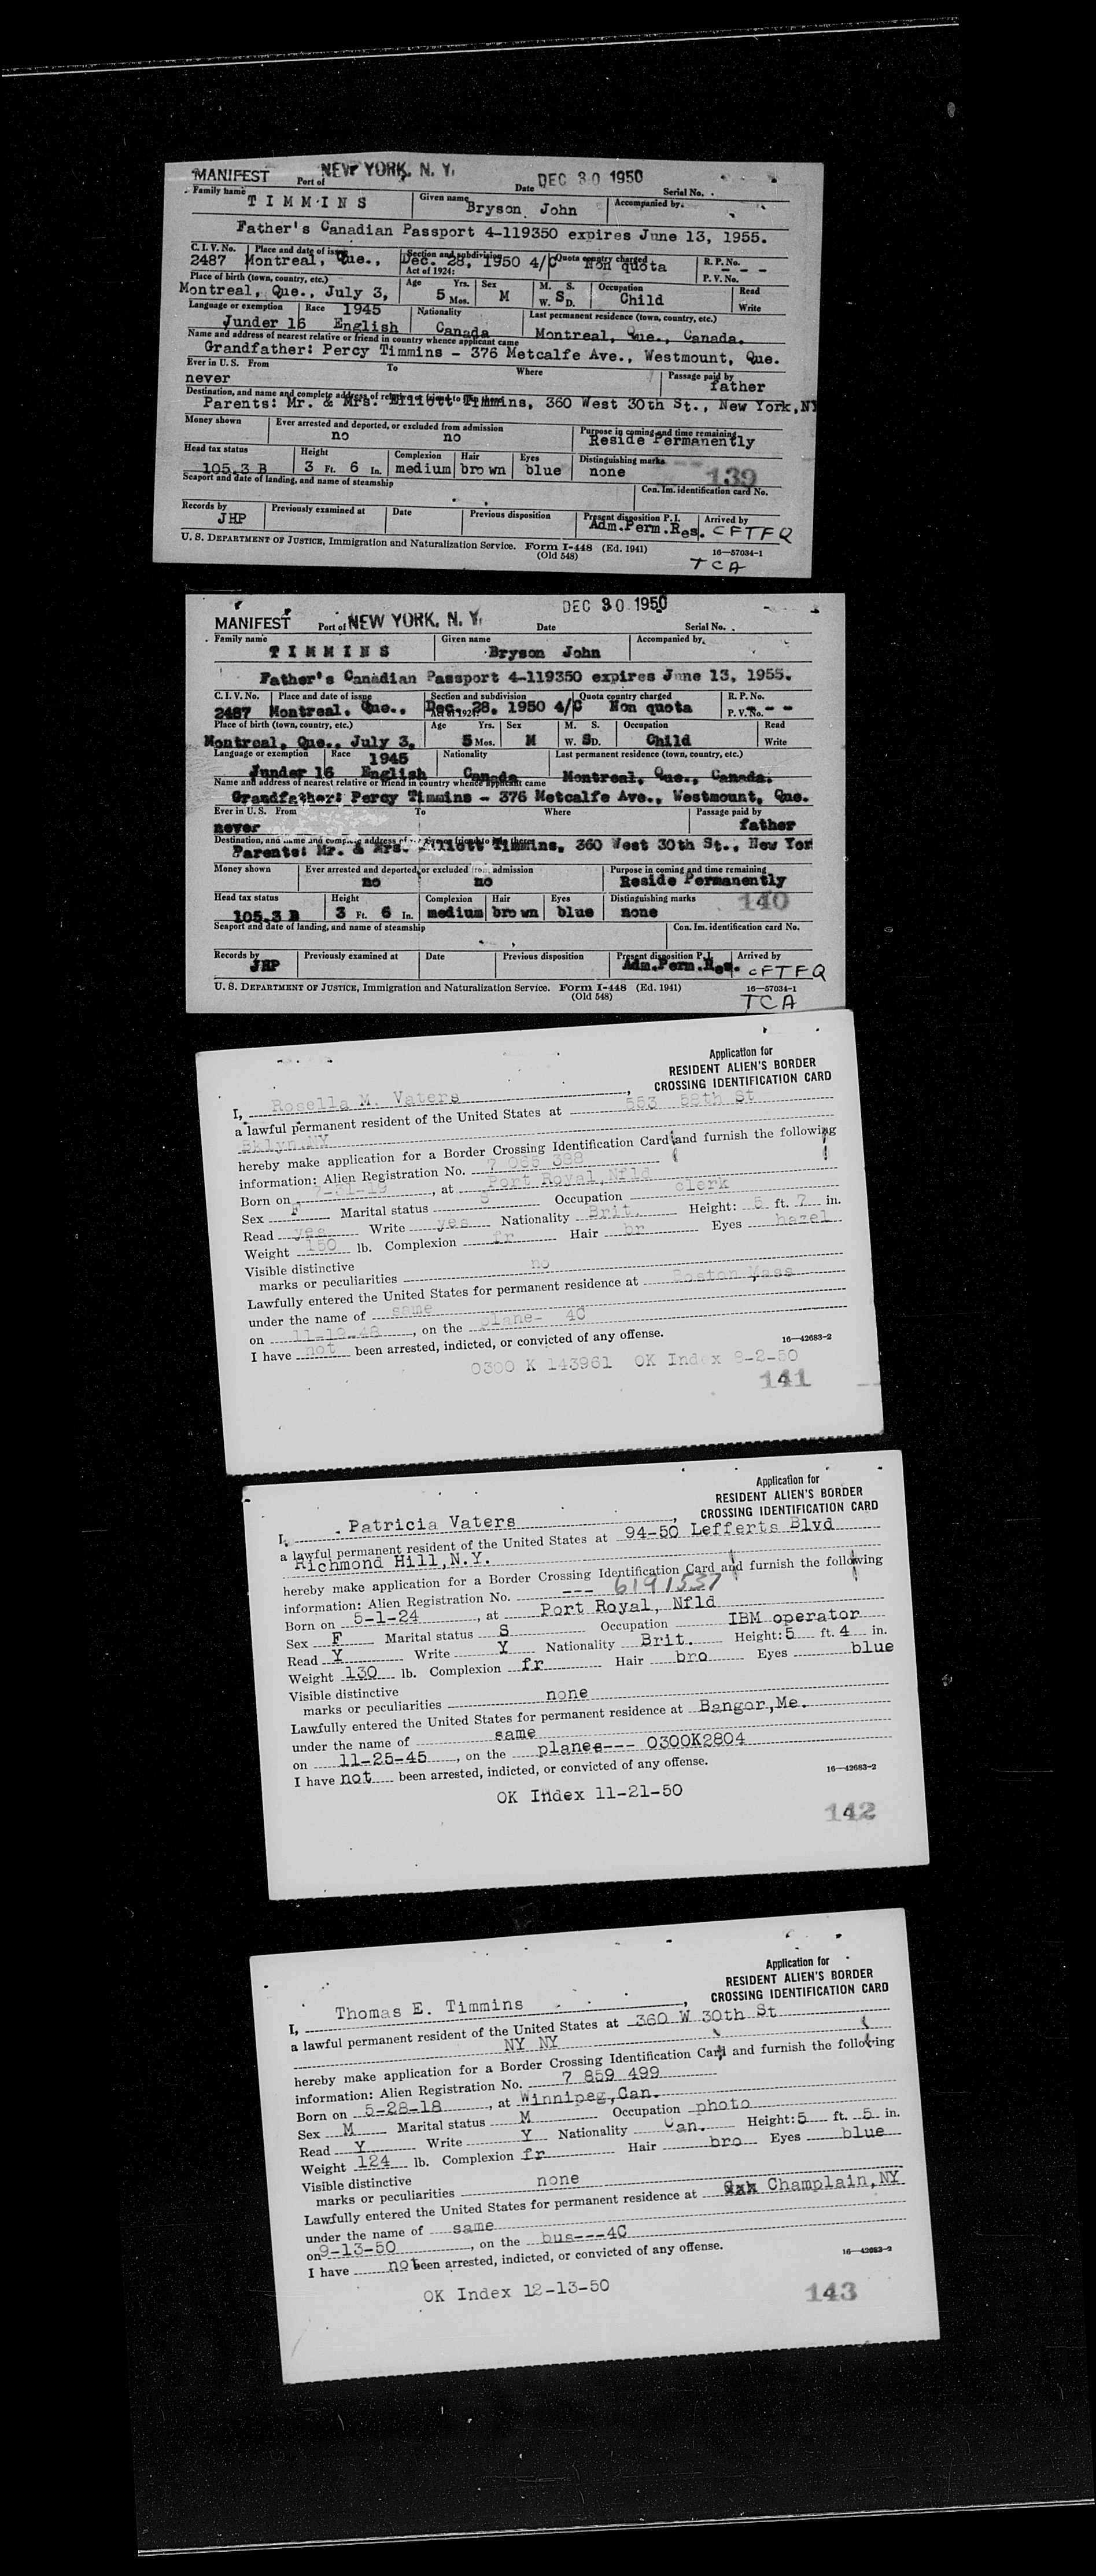 MANIFEST Port of NEW YORK, N. Y. Date DEC 30 1950 Serial No.
Family name TIMMINS Given name Bryson John Accompanied by
Father's Canadian Passport 4-119350 expires June 13, 1955.
C. I. V. No. Place and date of issue Section and subdivision Quota country charged R. P. No.
2487 Montreal, Que., Dec. 28, 1950 4/C Non quota - - -
Act of 1924: P. V. No.
Place of birth (town, country, etc.) Age Yrs. Sex M. S. Occupation Read
Montreal, Que., July 3, 5 Mos. M W. S D. Child Write
Language or exemption Race 1945 Nationality Last permanent residence (town, country, etc.)
Junder 16 English Canada Montreal, Que., Canada.
Name and address of nearest relative or friend in country whence applicant came
Grandfather: Percy Timmins - 376 Metcalfe Ave., Westmount, Que.
Ever in U. S. From To Where Passage paid by
never father
Destination, and name and complete address of relative or friend to join there
Parents: Mr. & Mrs. Elliott Timmins, 360 West 30th St., New York, NY
Money shown Ever arrested and deported, or excluded from admission Purpose in coming and time remaining
no no Reside Permanently
Head tax status Height Complexion Hair Eyes Distinguishing marks
105.3 B 3 Ft. 6 In. medium brown blue none 139
Seaport and date of landing, and name of steamship Con. Im. identification card No.
Records by Previously examined at Date Previous disposition Present disposition P. I. Arrived by
JHP Adm.Perm.Res. CFTFQ
U. S. DEPARTMENT OF JUSTICE, Immigration and Naturalization Service. Form I-448 (Ed. 1941) 16—57034-1
(Old 548) TCA
DEC 30 1950
MANIFEST Port of NEW YORK, N. Y. Date Serial No.
Family name Given name Accompanied by
TIMMINS Bryson John
Father's Canadian Passport 4-119350 expires June 13, 1955.
C. I. V. No. Place and date of issue Section and subdivision Quota country charged R. P. No.
2487 Montreal, Que., Dec. 28, 1950 4/C Non quota P. V. No. - -
Act of 1924:
Place of birth (town, country, etc.) Age Yrs. Sex M. S. Occupation Read
Montreal, Que., July 3, 5 Mos. M W. S D. Child Write
Language or exemption Race 1945 Nationality Last permanent residence (town, country, etc.)
Junder 16 English Canada Montreal, Que., Canada.
Name and address of nearest relative or friend in country whence applicant came
Grandfather: Percy Timmins - 376 Metcalfe Ave., Westmount, Que.
Ever in U. S. From To Where Passage paid by
never father
Destination, and name and complete address of relative or friend to join there
Parents: Mr. & Mrs. Elliott Timmins, 360 West 30th St., New Yor
Money shown Ever arrested and deported, or excluded from admission Purpose in coming and time remaining
no no Reside Permanently
Head tax status Height Complexion Hair Eyes Distinguishing marks 140
105.3 B 3 Ft. 6 In. medium brown blue none
Seaport and date of landing, and name of steamship Con. Im. identification card No.
Records by Previously examined at Date Previous disposition Present disposition P. I. Arrived by
JHP Adm.Perm.Res. CFTFQ
U. S. DEPARTMENT OF JUSTICE, Immigration and Naturalization Service. Form I-448 (Ed. 1941) 16—57034-1
(Old 548) TCA
Application for
RESIDENT ALIEN'S BORDER
CROSSING IDENTIFICATION CARD
I, Rosella M. Vaters,
a lawful permanent resident of the United States at 553 58th St
Bklyn.NY
hereby make application for a Border Crossing Identification Card and furnish the following
information: Alien Registration No. 7 065 398
Born on 7-31-19, at Port Royal Nfld
Sex F Marital status S Occupation clerk
Read yes Write yes Nationality Brit. Height: 5 ft. 7 in.
Weight 150 lb. Complexion fr Hair br Eyes hazel
Visible distinctive
marks or peculiarities no
Lawfully entered the United States for permanent residence at Boston Mass
under the name of same
on 11-19-48, on the plane- 4C
I have not been arrested, indicted, or convicted of any offense. 16—42683-2
0300 K 143961 OK Index 9-2-50
141
Application for
RESIDENT ALIEN'S BORDER
CROSSING IDENTIFICATION CARD
I, Patricia Vaters,
a lawful permanent resident of the United States at 94-50 Lefferts Blvd
Richmond Hill,N.Y.
hereby make application for a Border Crossing Identification Card and furnish the following
information: Alien Registration No. --- 6191537
Born on 5-1-24, at Port Royal, Nfld
Sex F Marital status S Occupation IBM operator
Read Y Write Y Nationality Brit. Height: 5 ft. 4 in.
Weight 130 lb. Complexion fr Hair bro Eyes blue
Visible distinctive
marks or peculiarities none
Lawfully entered the United States for permanent residence at Bangor,Me.
under the name of same
on 11-25-45, on the planes--- 0300K2804
I have not been arrested, indicted, or convicted of any offense. 16—42683-2
OK Index 11-21-50
142
Application for
RESIDENT ALIEN'S BORDER
CROSSING IDENTIFICATION CARD
I, Thomas E. Timmins,
a lawful permanent resident of the United States at 360 W 30th St
NY NY
hereby make application for a Border Crossing Identification Card and furnish the following
information: Alien Registration No. 7 859 499
Born on 5-28-18, at Winnipeg,Can.
Sex M Marital status M Occupation photo
Read Y Write Y Nationality Can. Height: 5 ft. 5 in.
Weight 124 lb. Complexion fr Hair bro Eyes blue
Visible distinctive
marks or peculiarities none
Lawfully entered the United States for permanent residence at Champlain,NY
under the name of same
on 9-13-50, on the bus---4C
I have not been arrested, indicted, or convicted of any offense. 16—42683-2
OK Index 12-13-50
143